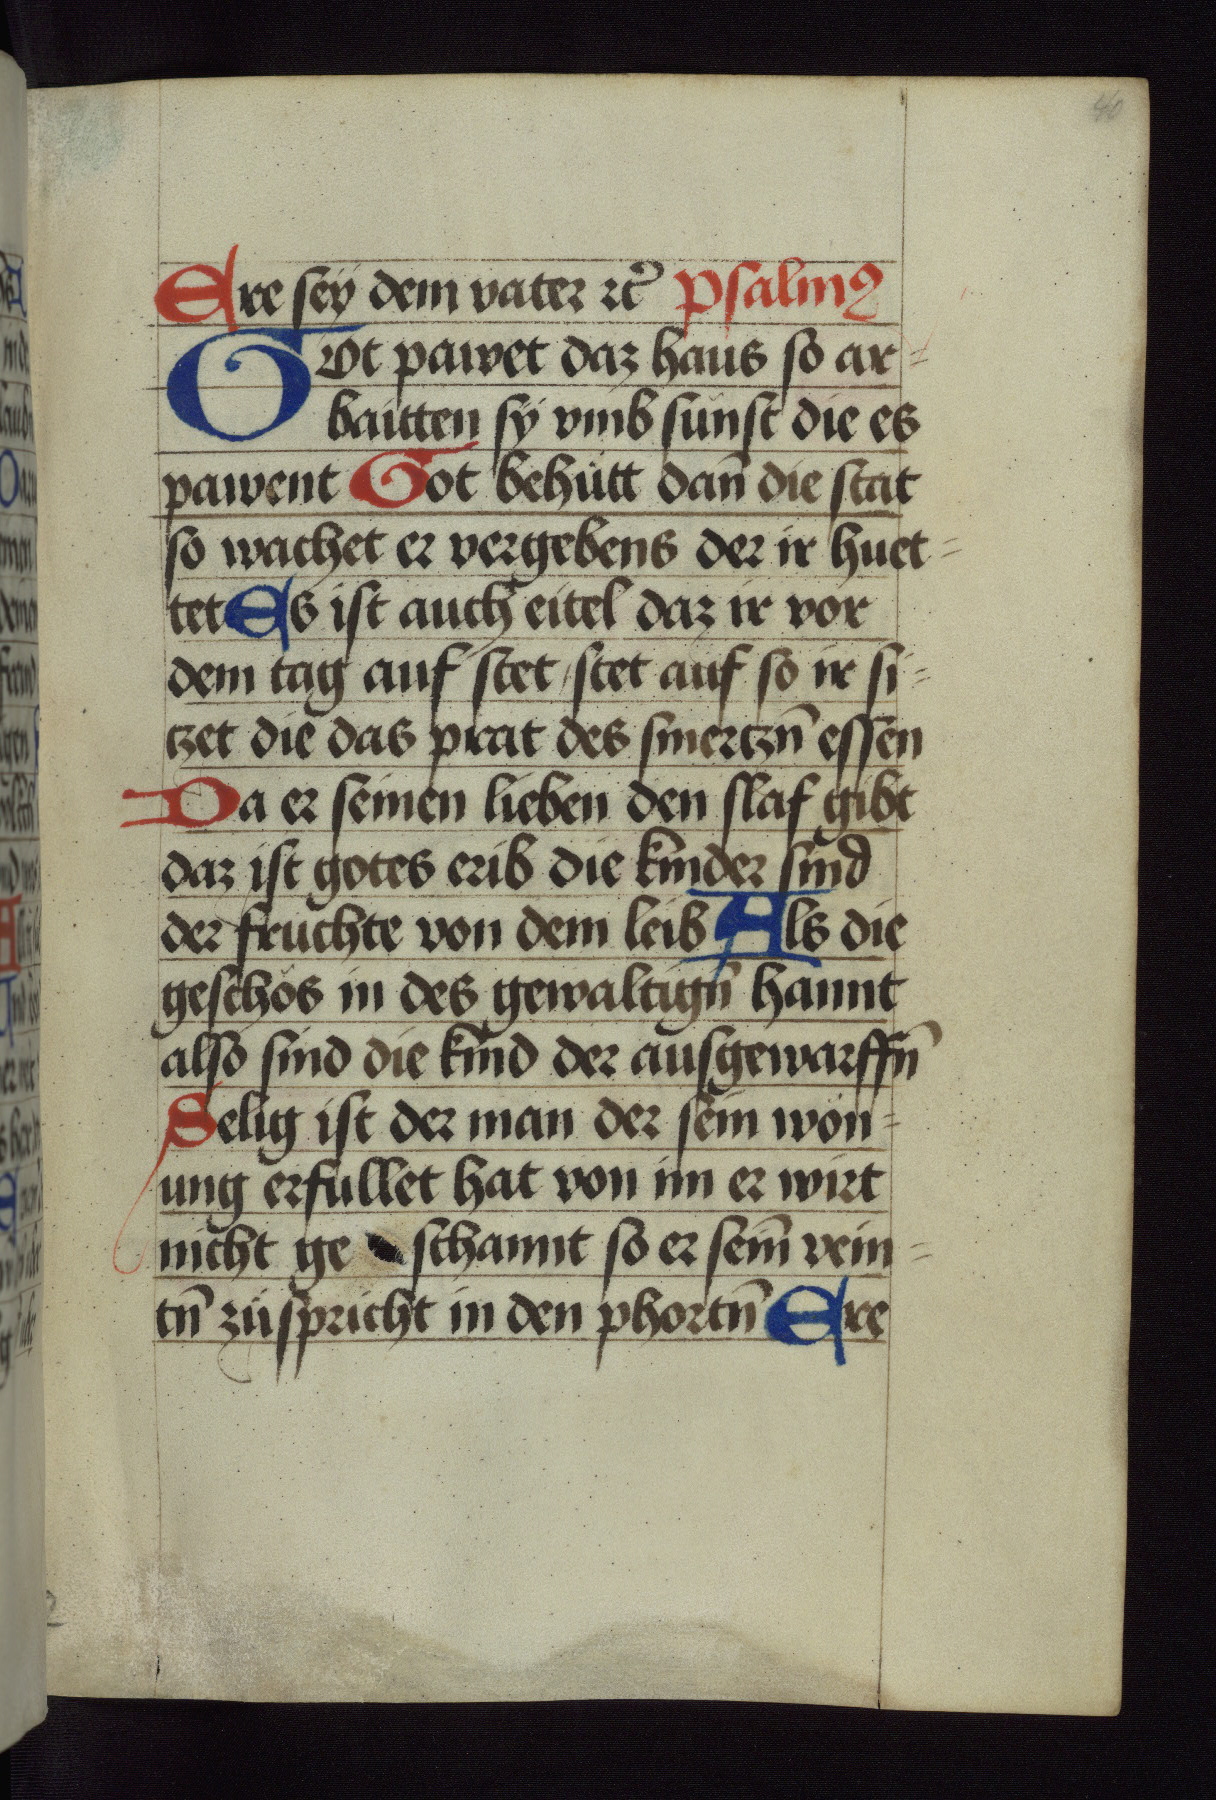 40
Ere seÿ dem vater ⁊c̃ Psalmꝯ
Got pawet daz haus so ar=
baitten sÿ vmb sunst die es
pawent Got behutt dan̄ die stat
so wachet er vergebens der ir huet=
tet Es ist auch eitel daz ir vor
dem tag auf stet / stet auf so ir si=
tzet die das prat des smertzn̄ essen
Da er seinen lieben den slaf gibt
daz ist gotes erib die kinder sind
der fruchte von dem leib Als die
geschos in des gewaltign̄ hannt
also sind die kind der ausgewarffn̄
Selig ist der man der sein won=
ung erfullet hat von im er wirt
nicht ge schannt so er sein̄ vein=
tn̄ zuspricht in den phortn̄ Ere